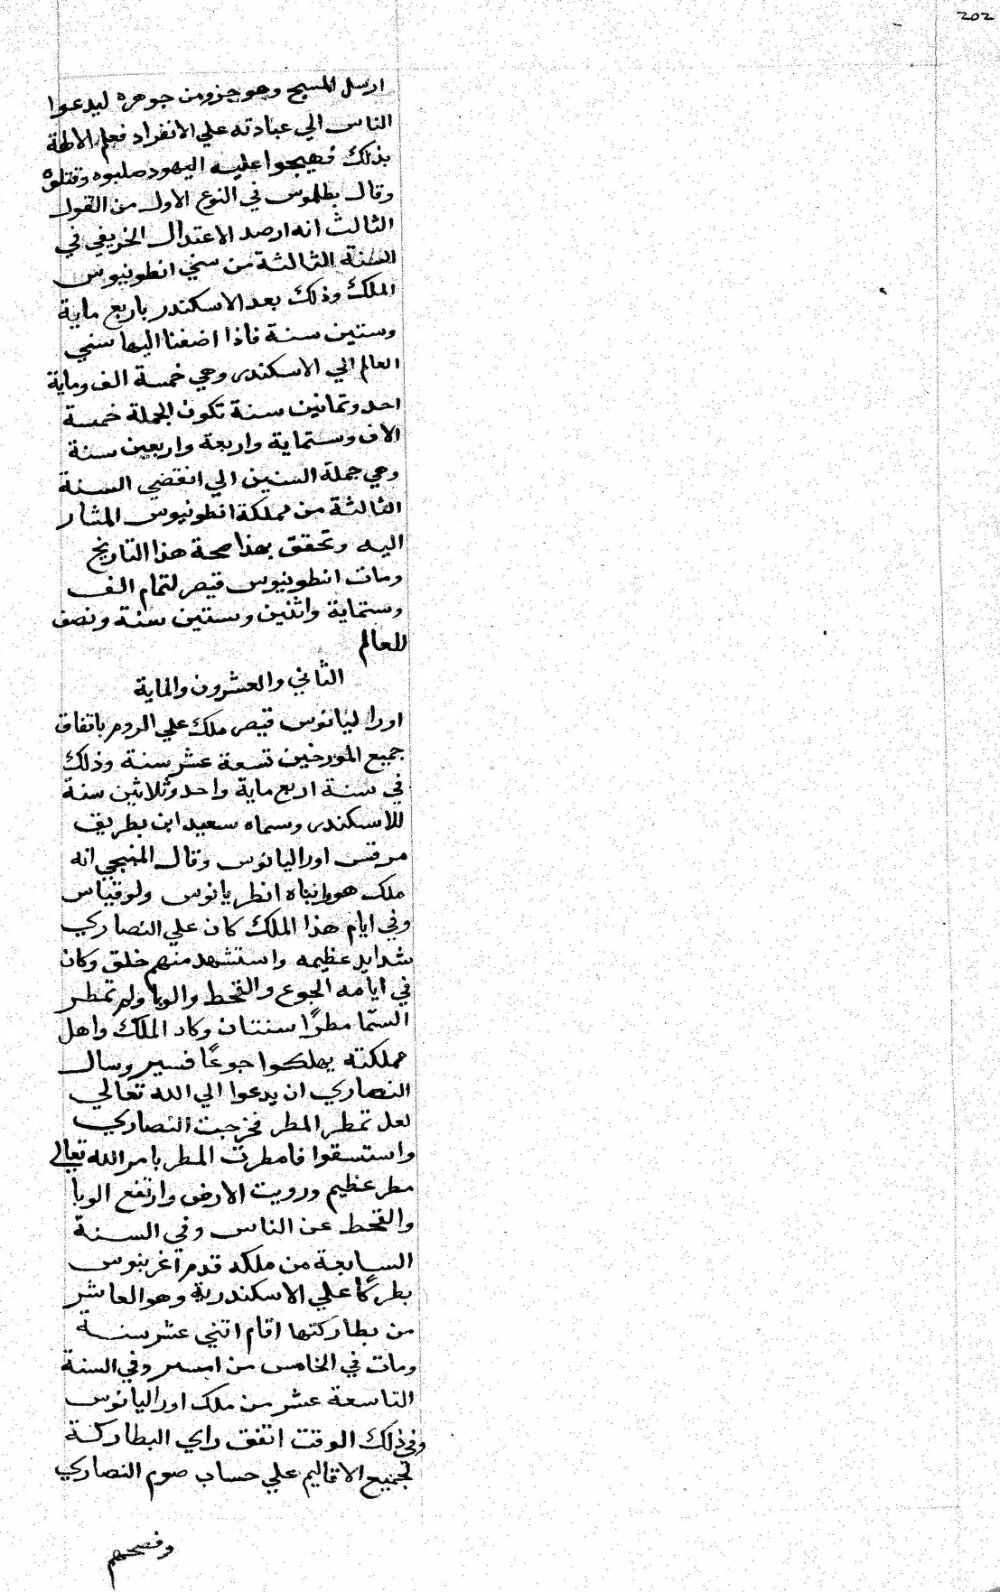 202
ارسل المسيح وهو جزو من جوهره ليدعوا
الناس الي عبادته علي الانفراد فعلم الالهة
بذلك فهيجوا عليه اليهود صلبوه وقتلوه
وقال بطلموس في النوع الاول من القول
الثالث انه ارصد الاعتدال الخريفي في
السنة الثالثة من سني انطونيوس
الملك وذلك بعد الاسكندر باربع ماية
وستين سنة فاذا اضفنا اليها سني
العالم الي الاسكندر وهي خمسة الف وماية
احد وتمانين سنة تكون الجملة خمسة
الاف وستماية واربعة واربعين سنة
وهي جملة السنين الي انقضي السنة
الثالثة من مملكة انطونيوس المشار
اليه وتحقق بهذا صحة هذا التاريخ
ومات انطونيوس قيصر لتمام الف
وستماية واثنين وستين سنة ونصف
للعالم
الثاني والعشرون والماية
اوراليانوس قيصر ملك علي الروم باتفاق
جميع المورخين تسعة عشر سنة وذلك
في سنة اربع ماية واحد وثلاثين سنة
للاسكندر وسماه سعيد ابن بطريق
مرقس اوراليانوس وقال المنبجي انه
ملك هو وابناه انطريانوس ولوقياس
وفي ايام هذا الملك كان علي النصاري
شدايد عظيمه واستشهد منهم خلق وكان
في ايامه الجوع والقحط والوبا ولم تمطر
السمّا مطرًا سنتان وكاد الملك واهل
مملكته يهلكوا جوعًا فسير وسال
النصاري ان يدعوا الي الله تعالي
لعل تمطر المطر فخرجت النصاري
واستسقوا فامطرت المطر بامر الله تعالي
مطر عظيم ورويت الارض وارتفع الوبا
والقحط عن الناس وفي السنة
السابعة من ملكه قدم اغربنوس
بطركًا علي الاسكندرية وهو العاشر
من بطاركتها اقام اتني عشر سنة
ومات في الخامس من امسير وفي السنة
التاسعة عشر من ملك اوراليانوس
وفي ذلك الوقت اتفق راي البطاركة
لجميع الاقاليم علي حساب صوم النصاري
وفصحهم